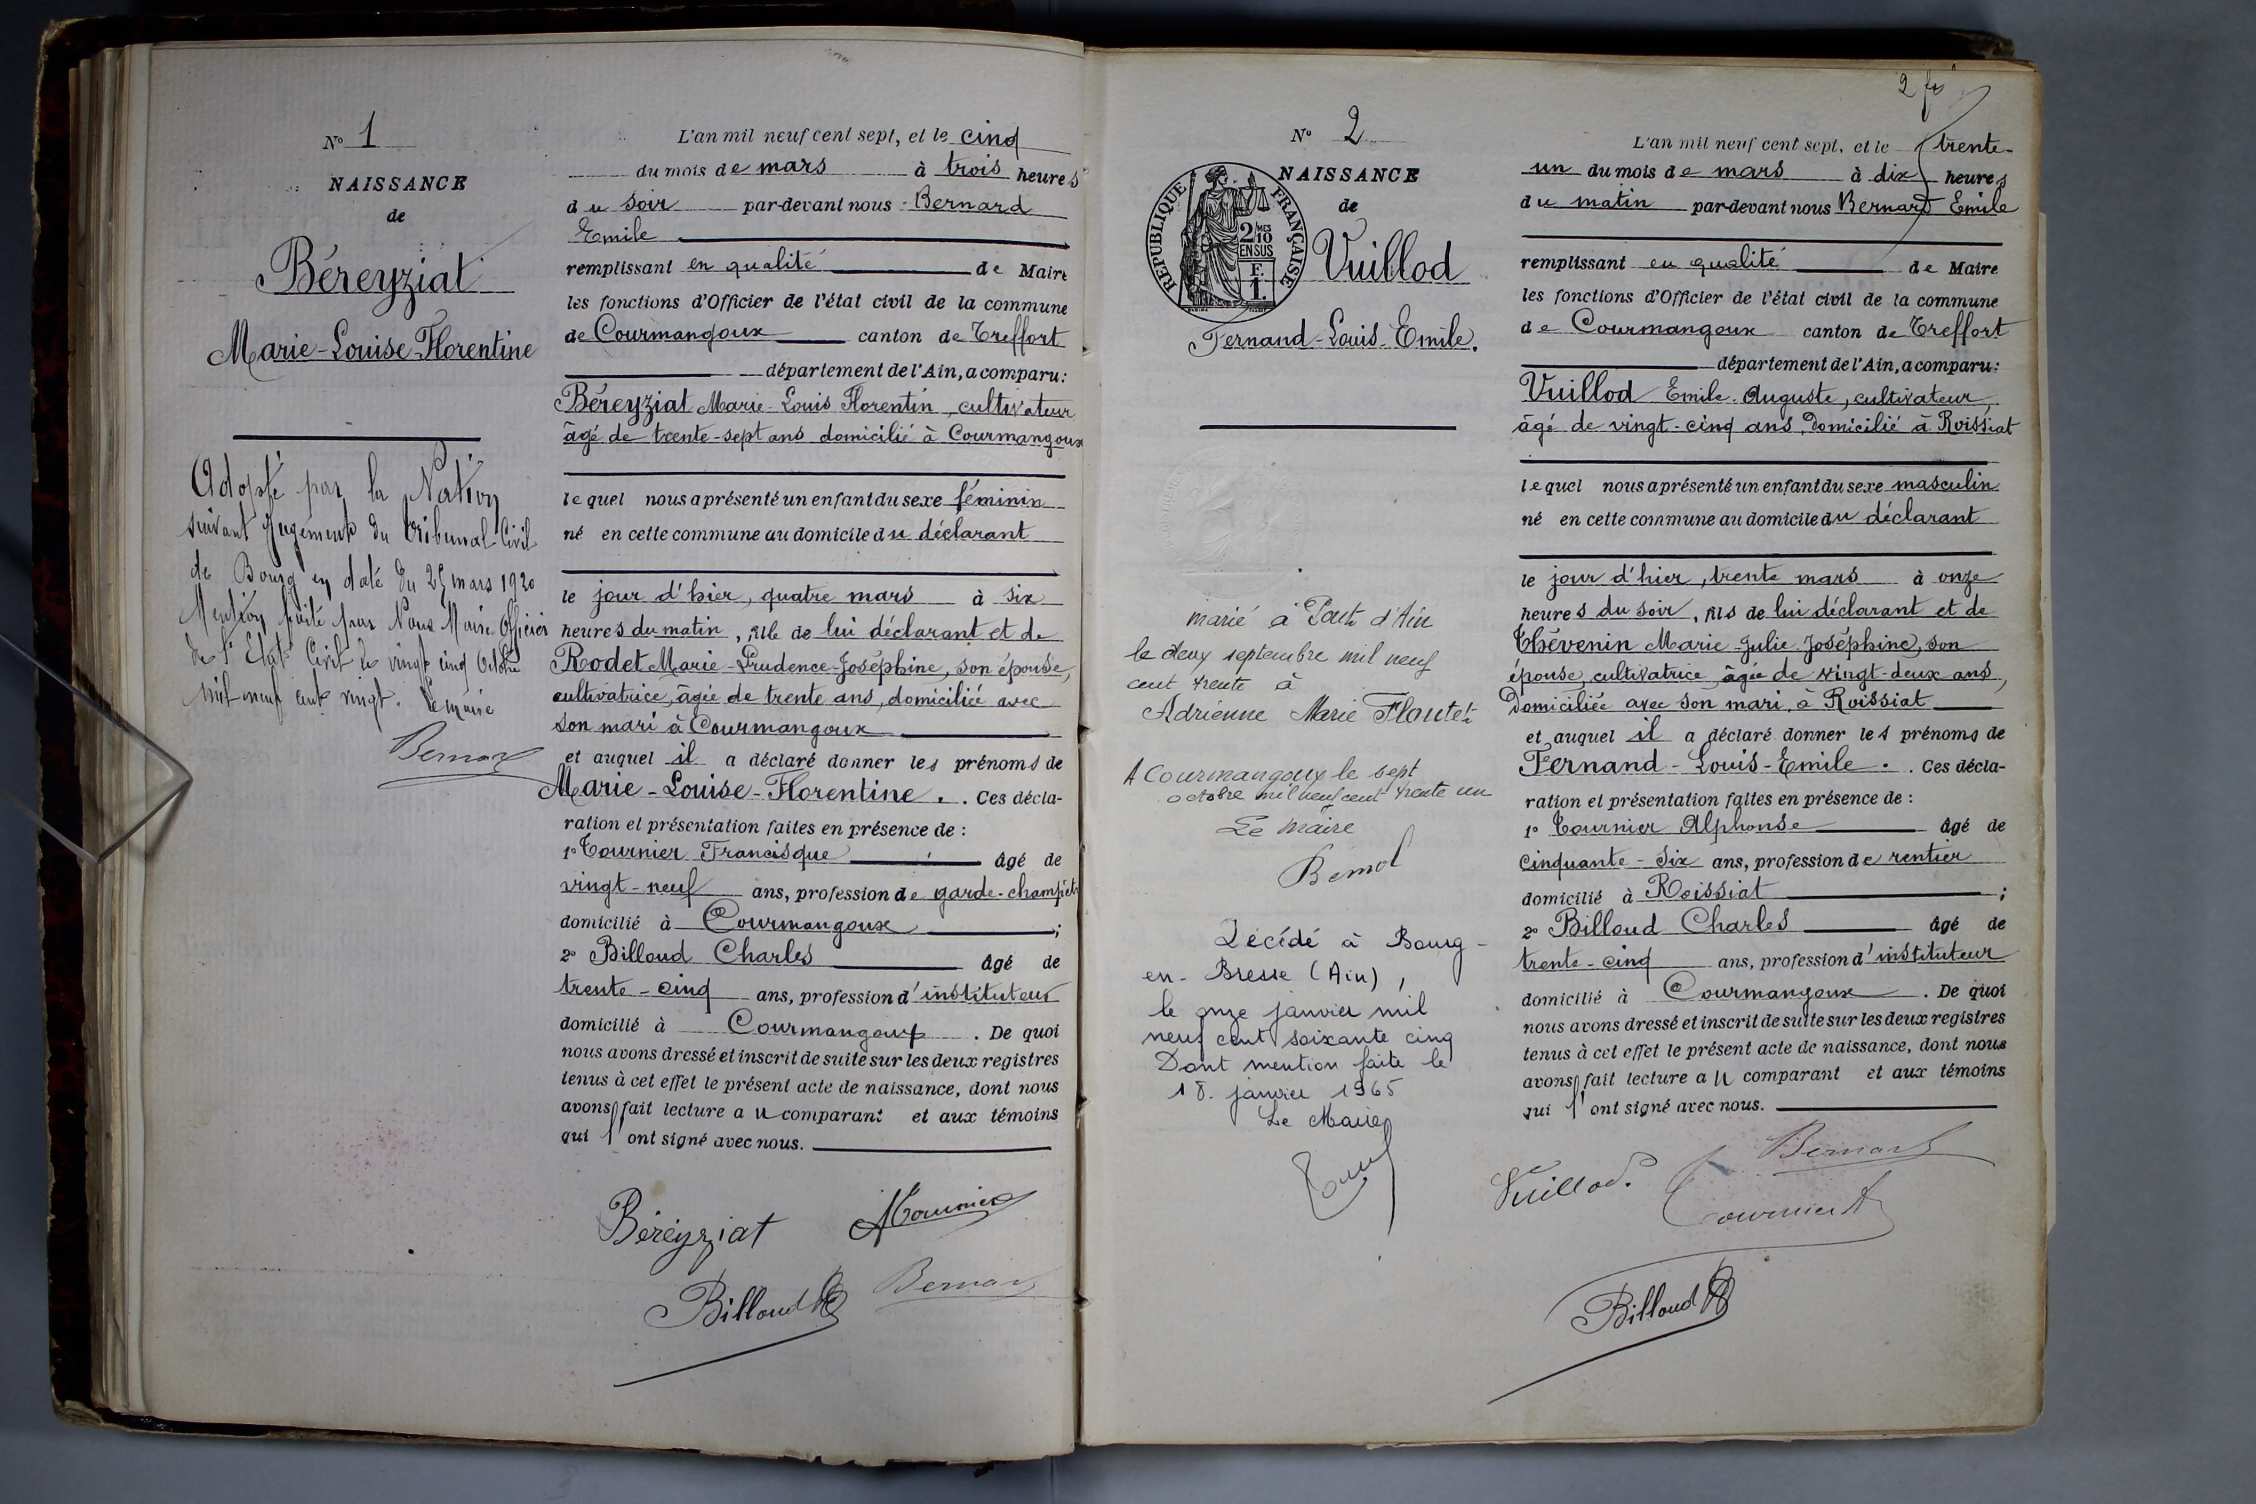 N° 1
NAISSANCE
de
Béreyziat
Marie-Louise-Florentine
Adopté par la Nation
suivant Jugement du Tribunal Civil
de Bourg en date du 25 mars 1920
Mention faite par Nous Maire Officier
de l'Etat Civil le vingt cinq Octobre
mil neuf cent vingt. Le maire
Bernard
L'an mil neuf cent sept, et le cinq
du mois de mars à trois heures
du soir par-devant nous Bernard
Emile
remplissant en qualité de Maire
les fonctions d'Officier de l'état civil de la commune
de Courmangoux canton de Treffort
département de l'Ain, a comparu:
Béreyziat Marie-Louis Florentin, cultivateur
âgé de trente-sept ans domicilié à Courmangoux
lequel nous a présenté un enfant du sexe féminin
né en cette commune au domicile du déclarant
le jour d'hier, quatre mars à six
heures du matin, fille de lui déclarant et de
Rodet Marie-Prudence-Joséphine, son épouse,
cultivatrice, âgée de trente ans, domiciliée avec
son mari à Courmangoux
et auquel il a déclaré donner les prénoms de
Marie-Louise-Florentine. . Ces décla-
ration et présentation faites en présence de :
1° Tournier Francisque âgé de
vingt-neuf ans, profession de garde-champêtre
domicilié à Courmangoux ;
2° Billoud Charles âgé de
trente-cinq ans, profession d'instituteur
domicilié à Courmangoux . De quoi
nous avons dressé et inscrit de suite sur les deux registres
tenus à cet effet le présent acte de naissance, dont nous
avons fait lecture au comparant et aux témoins
qui l'ont signé avec nous.
Béreyziat
Tournier
Billoud
Bernard
2 fs
N° 2
NAISSANCE
de
RÉPUBLIQUE FRANÇAISE
2 MES
10
EN SUS
F.
1.
Vuillod
Fernand-Louis-Emile.
marié à Pont d'Ain
le deux septembre mil neuf
cent trente à
Adrienne Marie Floutet
A Courmangoux le sept
octobre mil neuf cent trente un
Le Maire
Décédé à Bourg-
en-Bresse (Ain),
le onze janvier mil
neuf cent soixante cinq
Dont mention faite le
18 janvier 1965
Le Maire
L'an mil neuf cent sept, et le trente-
un du mois de mars à dix heures
du matin par-devant nous Bernard Emile
remplissant en qualité de Maire
les fonctions d'Officier de l'état civil de la commune
de Courmangoux canton de Treffort
département de l'Ain, a comparu:
Vuillod Emile-Auguste, cultivateur,
âgé de vingt-cinq ans, domicilié à Roissiat
lequel nous a présenté un enfant du sexe masculin
né en cette commune au domicile du déclarant
le jour d'hier, trente mars à onze
heures du soir, fils de lui déclarant et de
Thévenin Marie-Julie-Joséphine, son
épouse, cultivatrice, âgée de vingt-deux ans,
domiciliée avec son mari, à Roissiat
et auquel il a déclaré donner les prénoms de
Fernand-Louis-Emile. . Ces décla-
ration et présentation faites en présence de :
1° Tournier Alphonse âgé de
cinquante-six ans, profession de rentier
domicilié à Roissiat ;
2° Billoud Charles âgé de
trente-cinq ans, profession d'instituteur
domicilié à Courmangoux . De quoi
nous avons dressé et inscrit de suite sur les deux registres
tenus à cet effet le présent acte de naissance, dont nous
avons fait lecture au comparant et aux témoins
qui l'ont signé avec nous.
Bernard
Vuillod.
Tournier A
Billoud